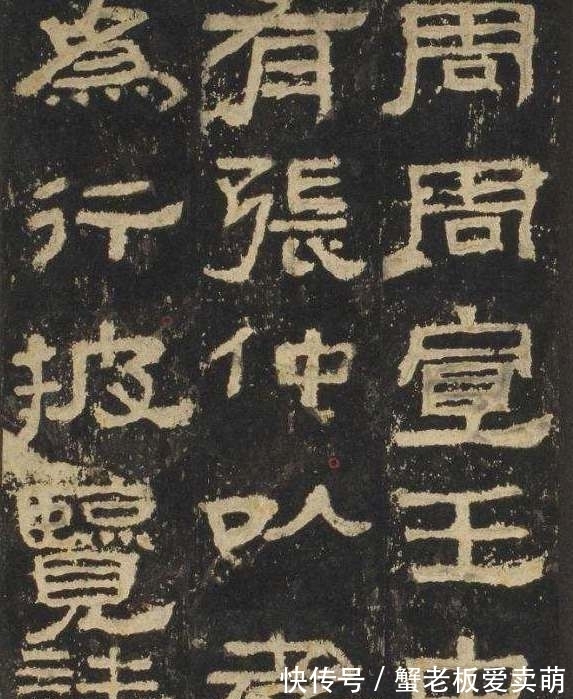 周周宣王
有張仲以孝
為行披覽詩
快传号 / 蟹老板爱卖萌